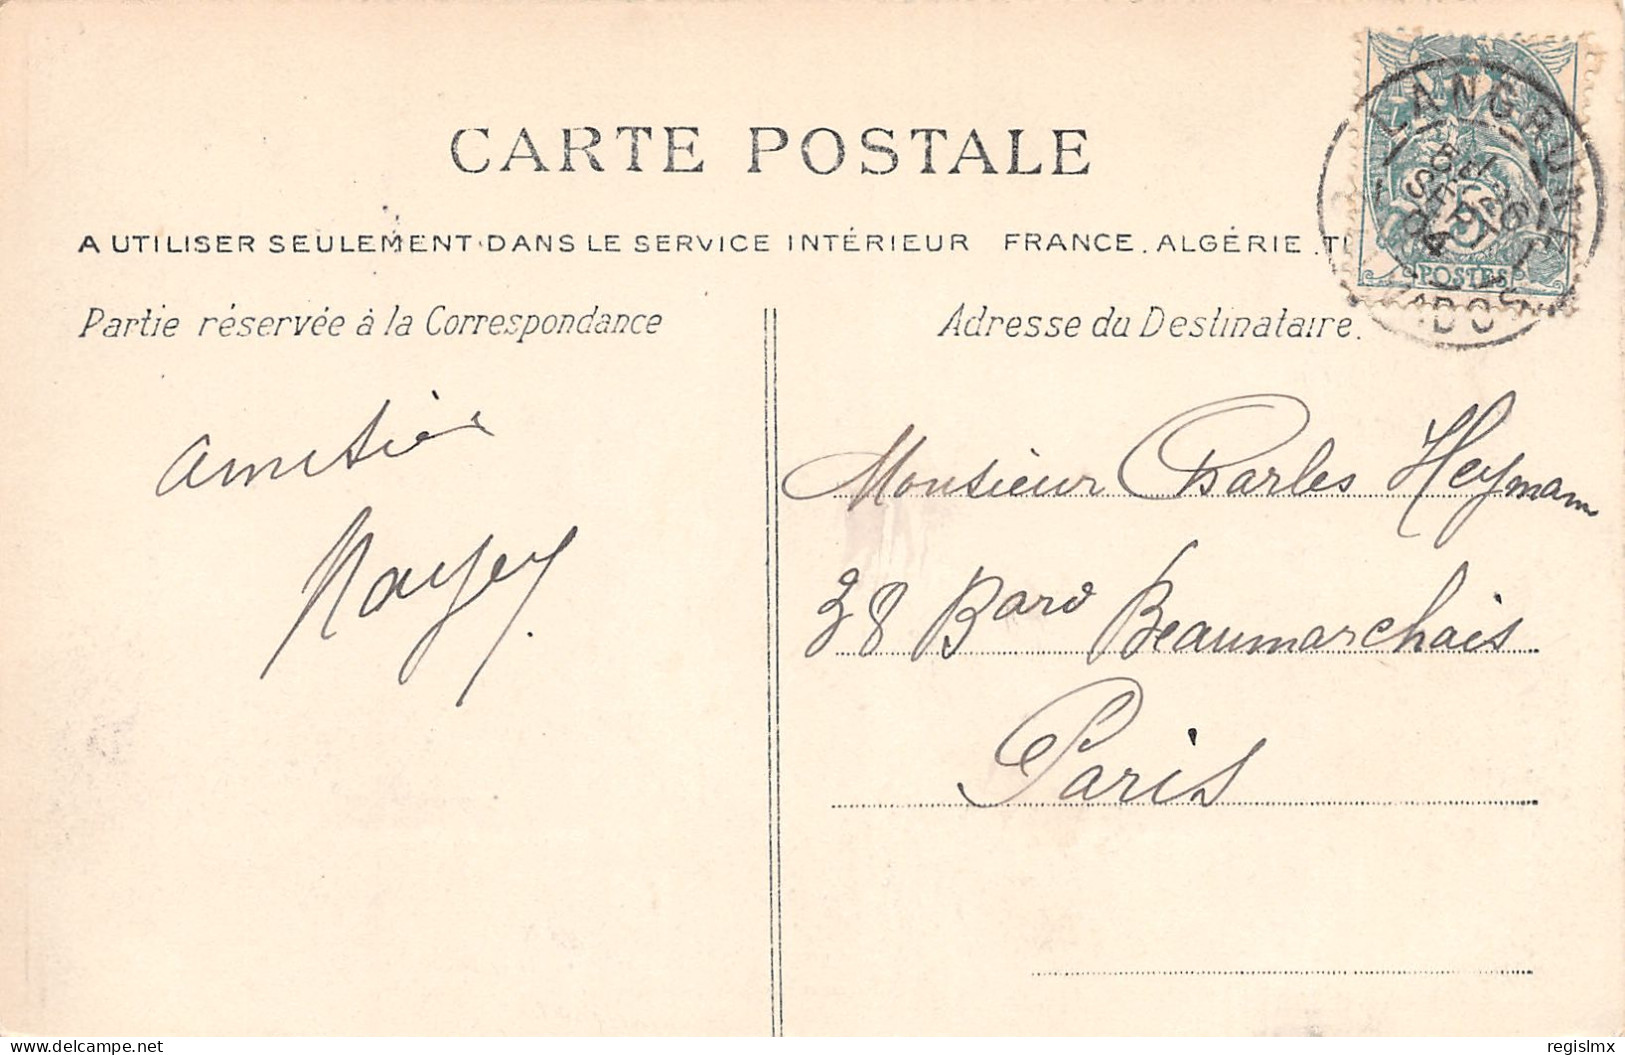 CARTE POSTALE
A UTILISER SEULEMENT DANS LE SERVICE INTÉRIEUR FRANCE. ALGÉRIE.
Partie réservée à la Correspondance
Adresse du Destinataire.
LANGRUNE
SEPT
04
5
POSTES
amitiés
Monsieur Charles Heymann
38 Bard Beaumarchais
Paris
Delcampe.net
regislmx